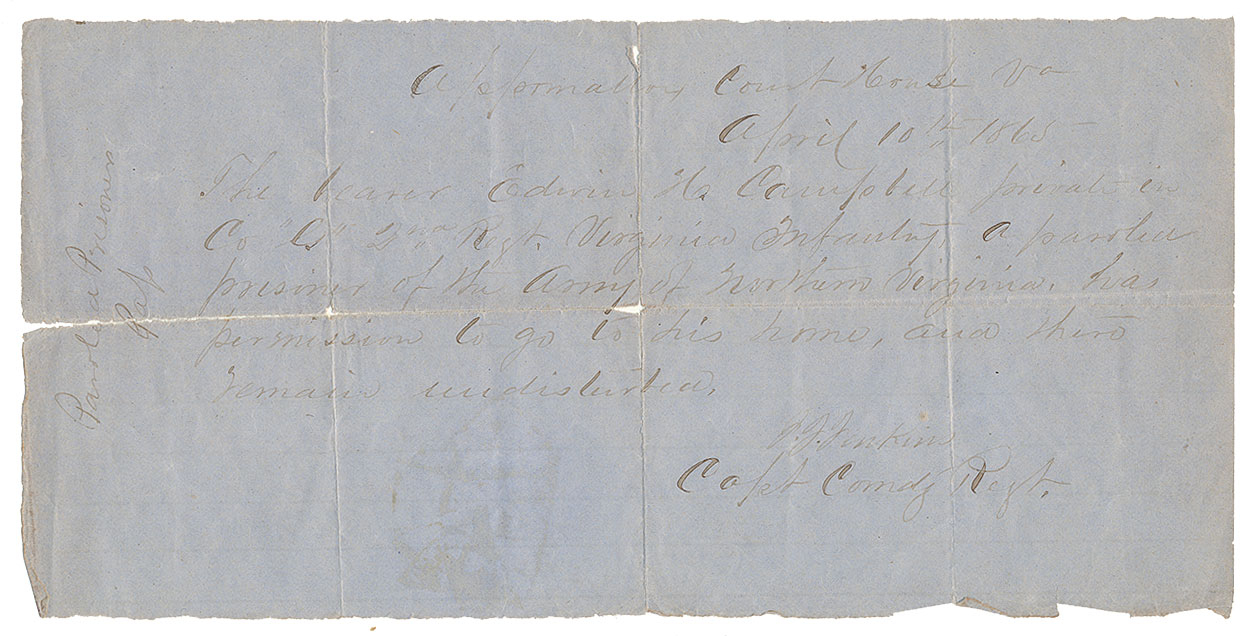 Appomattox Court House Va
April 10th 1865
The bearer Edwin H. Campbell private in
Co "G" 2nd Regt. Virginia Infantry, a paroled
prisoner of the Army of Northern Virginia, has
permission to go to his home, and there
remain undisturbed.
Jenkins
Capt Comdg Regt.
Paroled Prisoners
Pass